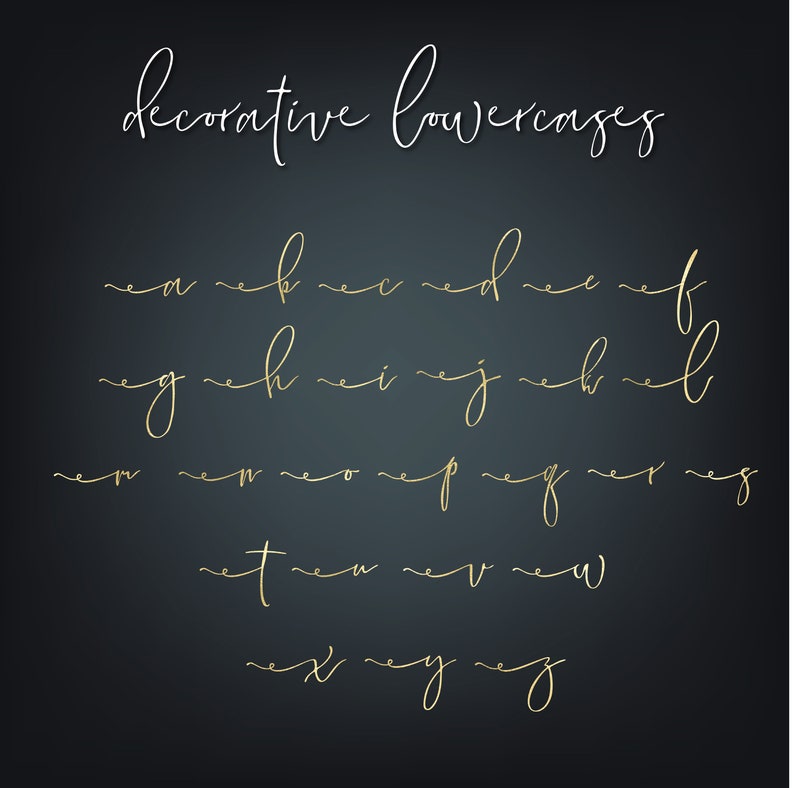 decorative lowercases
a b c d e f
g h i j k l
m n o p q r s
t u v w
x y z